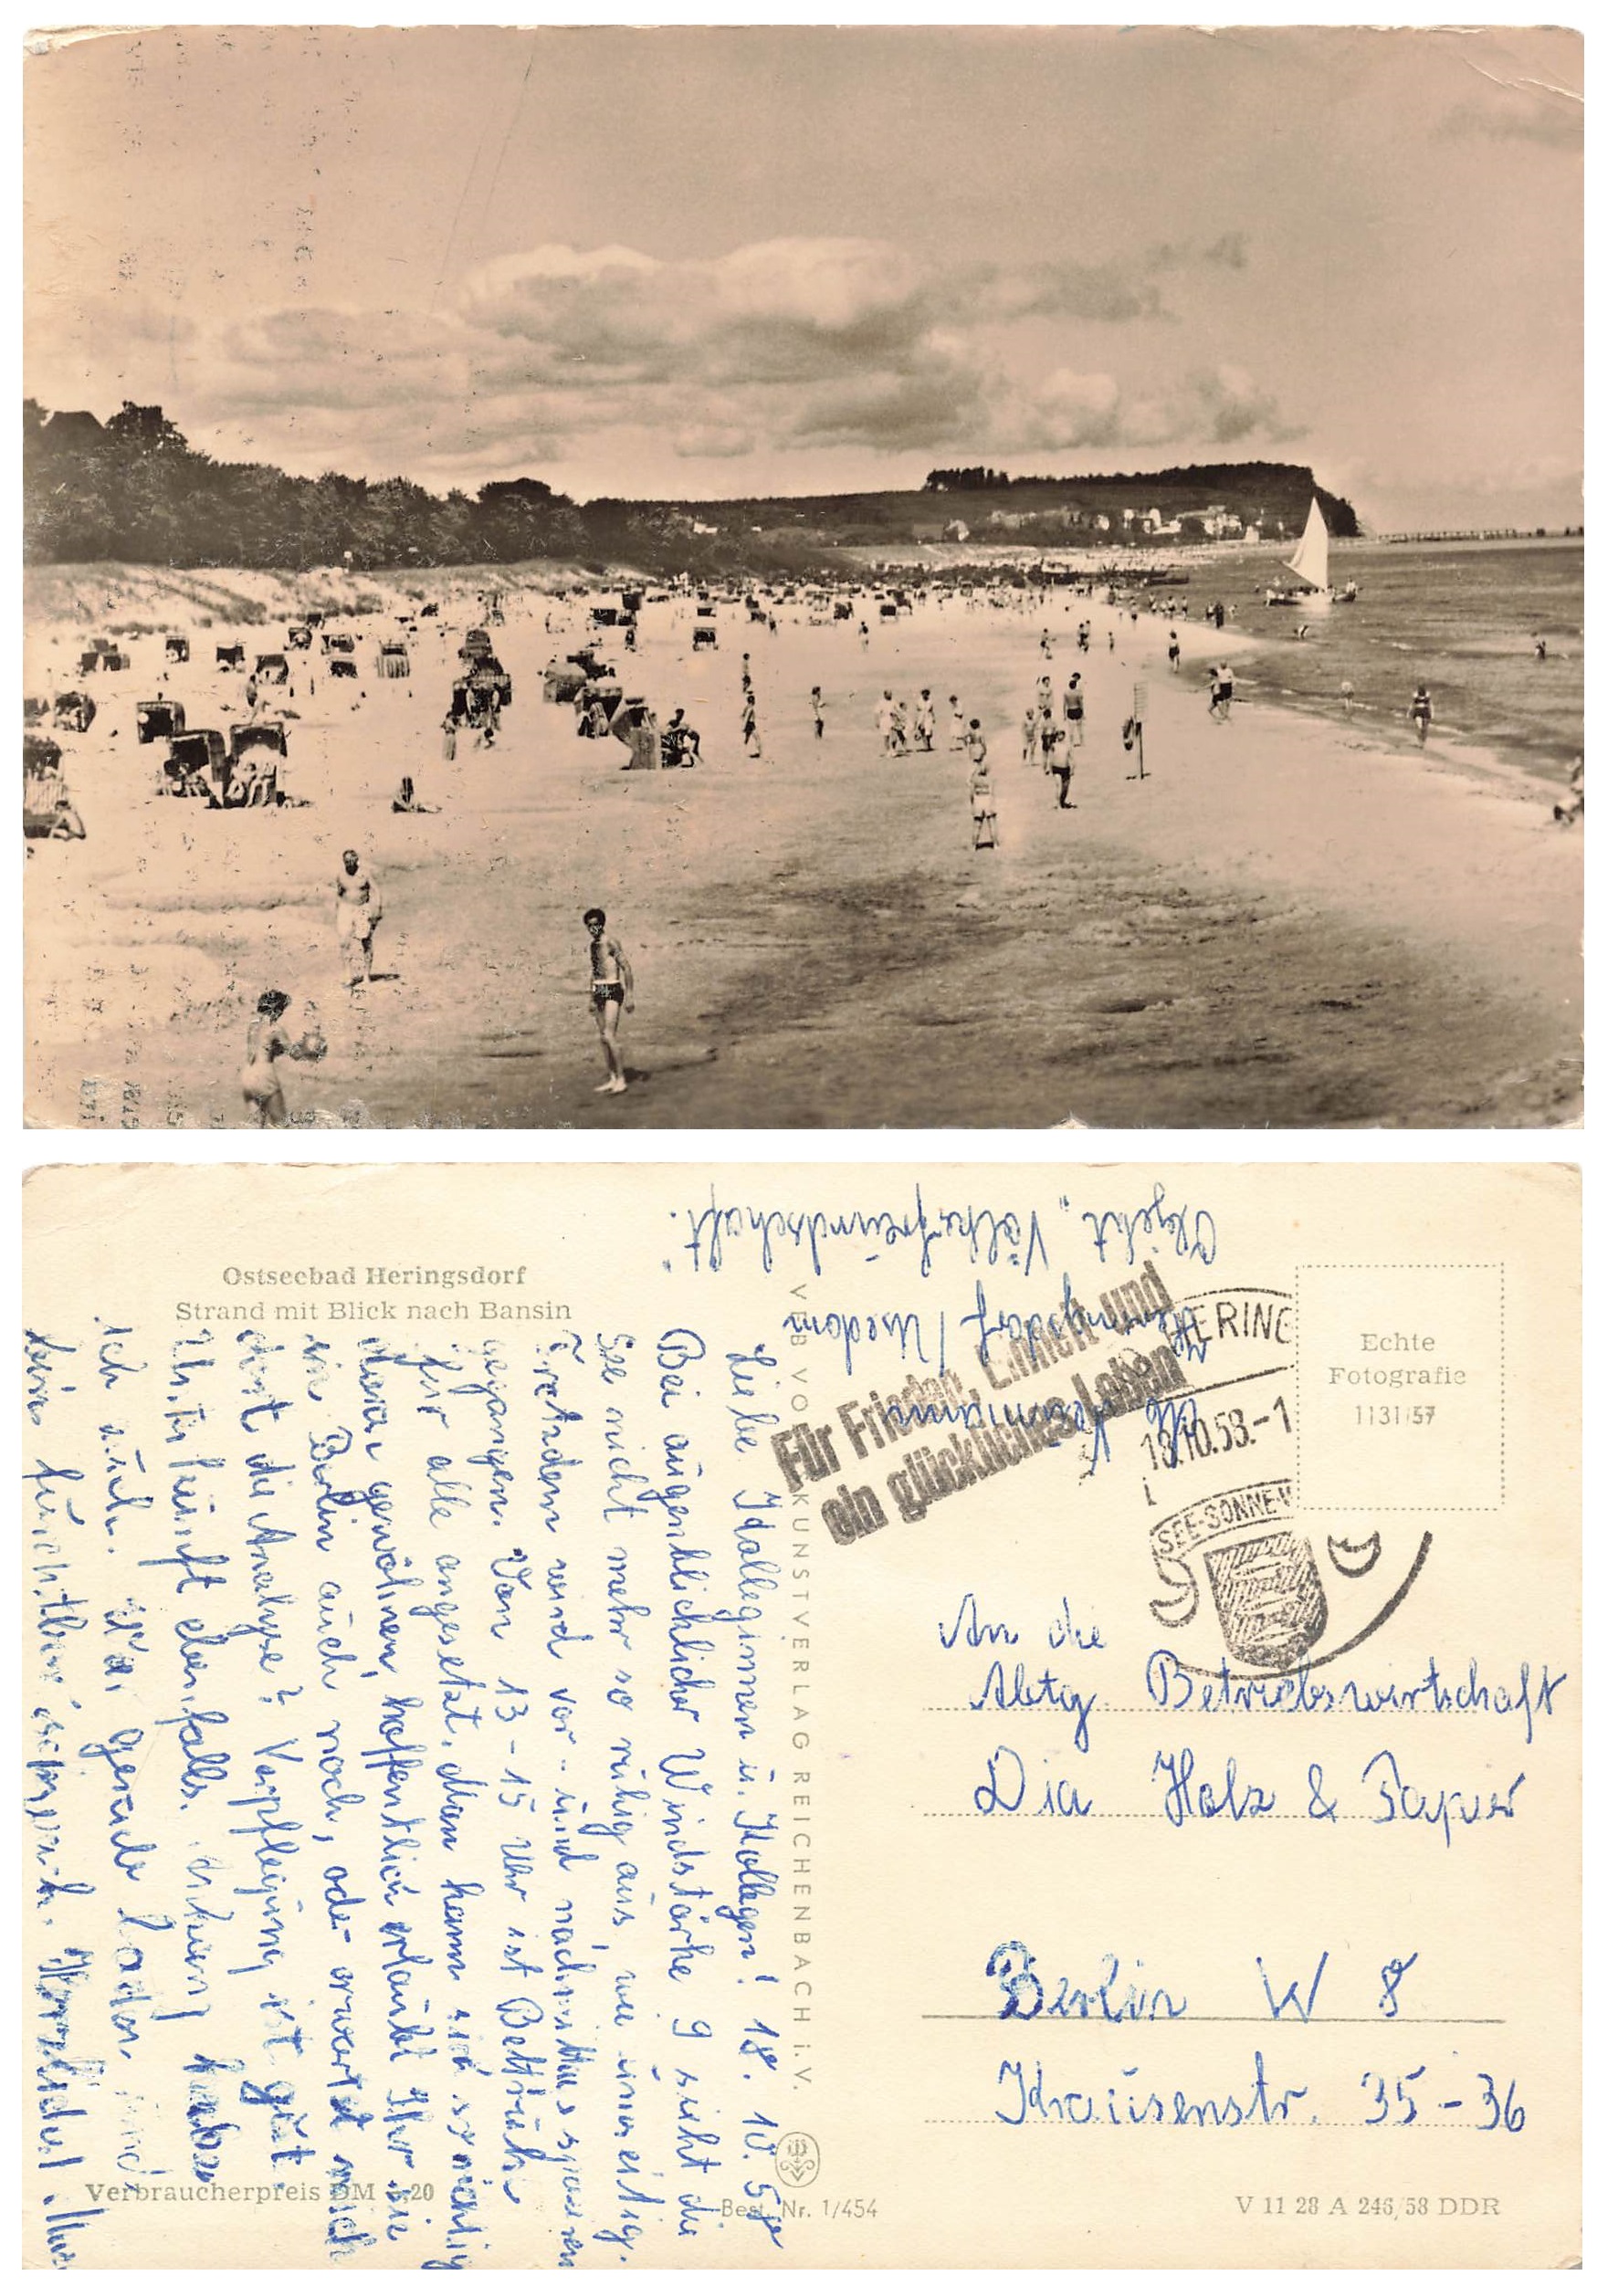 Ostseebad Heringsdorf
Strand mit Blick nach Bansin
Objekt "Völkerfreundschaft"
Heringsdorf / Usedom
Für Frieden, Einheit und
ein glückliches Leben
HERING
18.10.58.-1
SEE-SONNE-W
Echte
Fotografie
1131/57
Liebe Kolleginnen u. Kollegen! 18. 10. 58
Bei augenblicklicher Windstärke 9 sieht die
See nicht mehr so ruhig aus, wie umseitig.
Trotzdem wird vor- und nachmittags spazieren
gegangen. Von 13-15 Uhr ist Bettruhe
für alle angesetzt, daran kann man sich richtig
gewöhnen, hoffentlich erlaubt Ihr sie
in Berlin auch noch, oder erwartet mich
dort die Analyse? Verpflegung ist gut,
Unterkunft ebenfalls.
Ich
bin furchtbar
VEB VOLKSKUNSTVERLAG REICHENBACH i. V.
An die
Abtg. Betriebswirtschaft
Dia Holz & Papier
Berlin W 8
Krausenstr. 35-36
Verbraucherpreis DM -,20
Best. Nr. 1/454
V 11 28 A 246/58 DDR